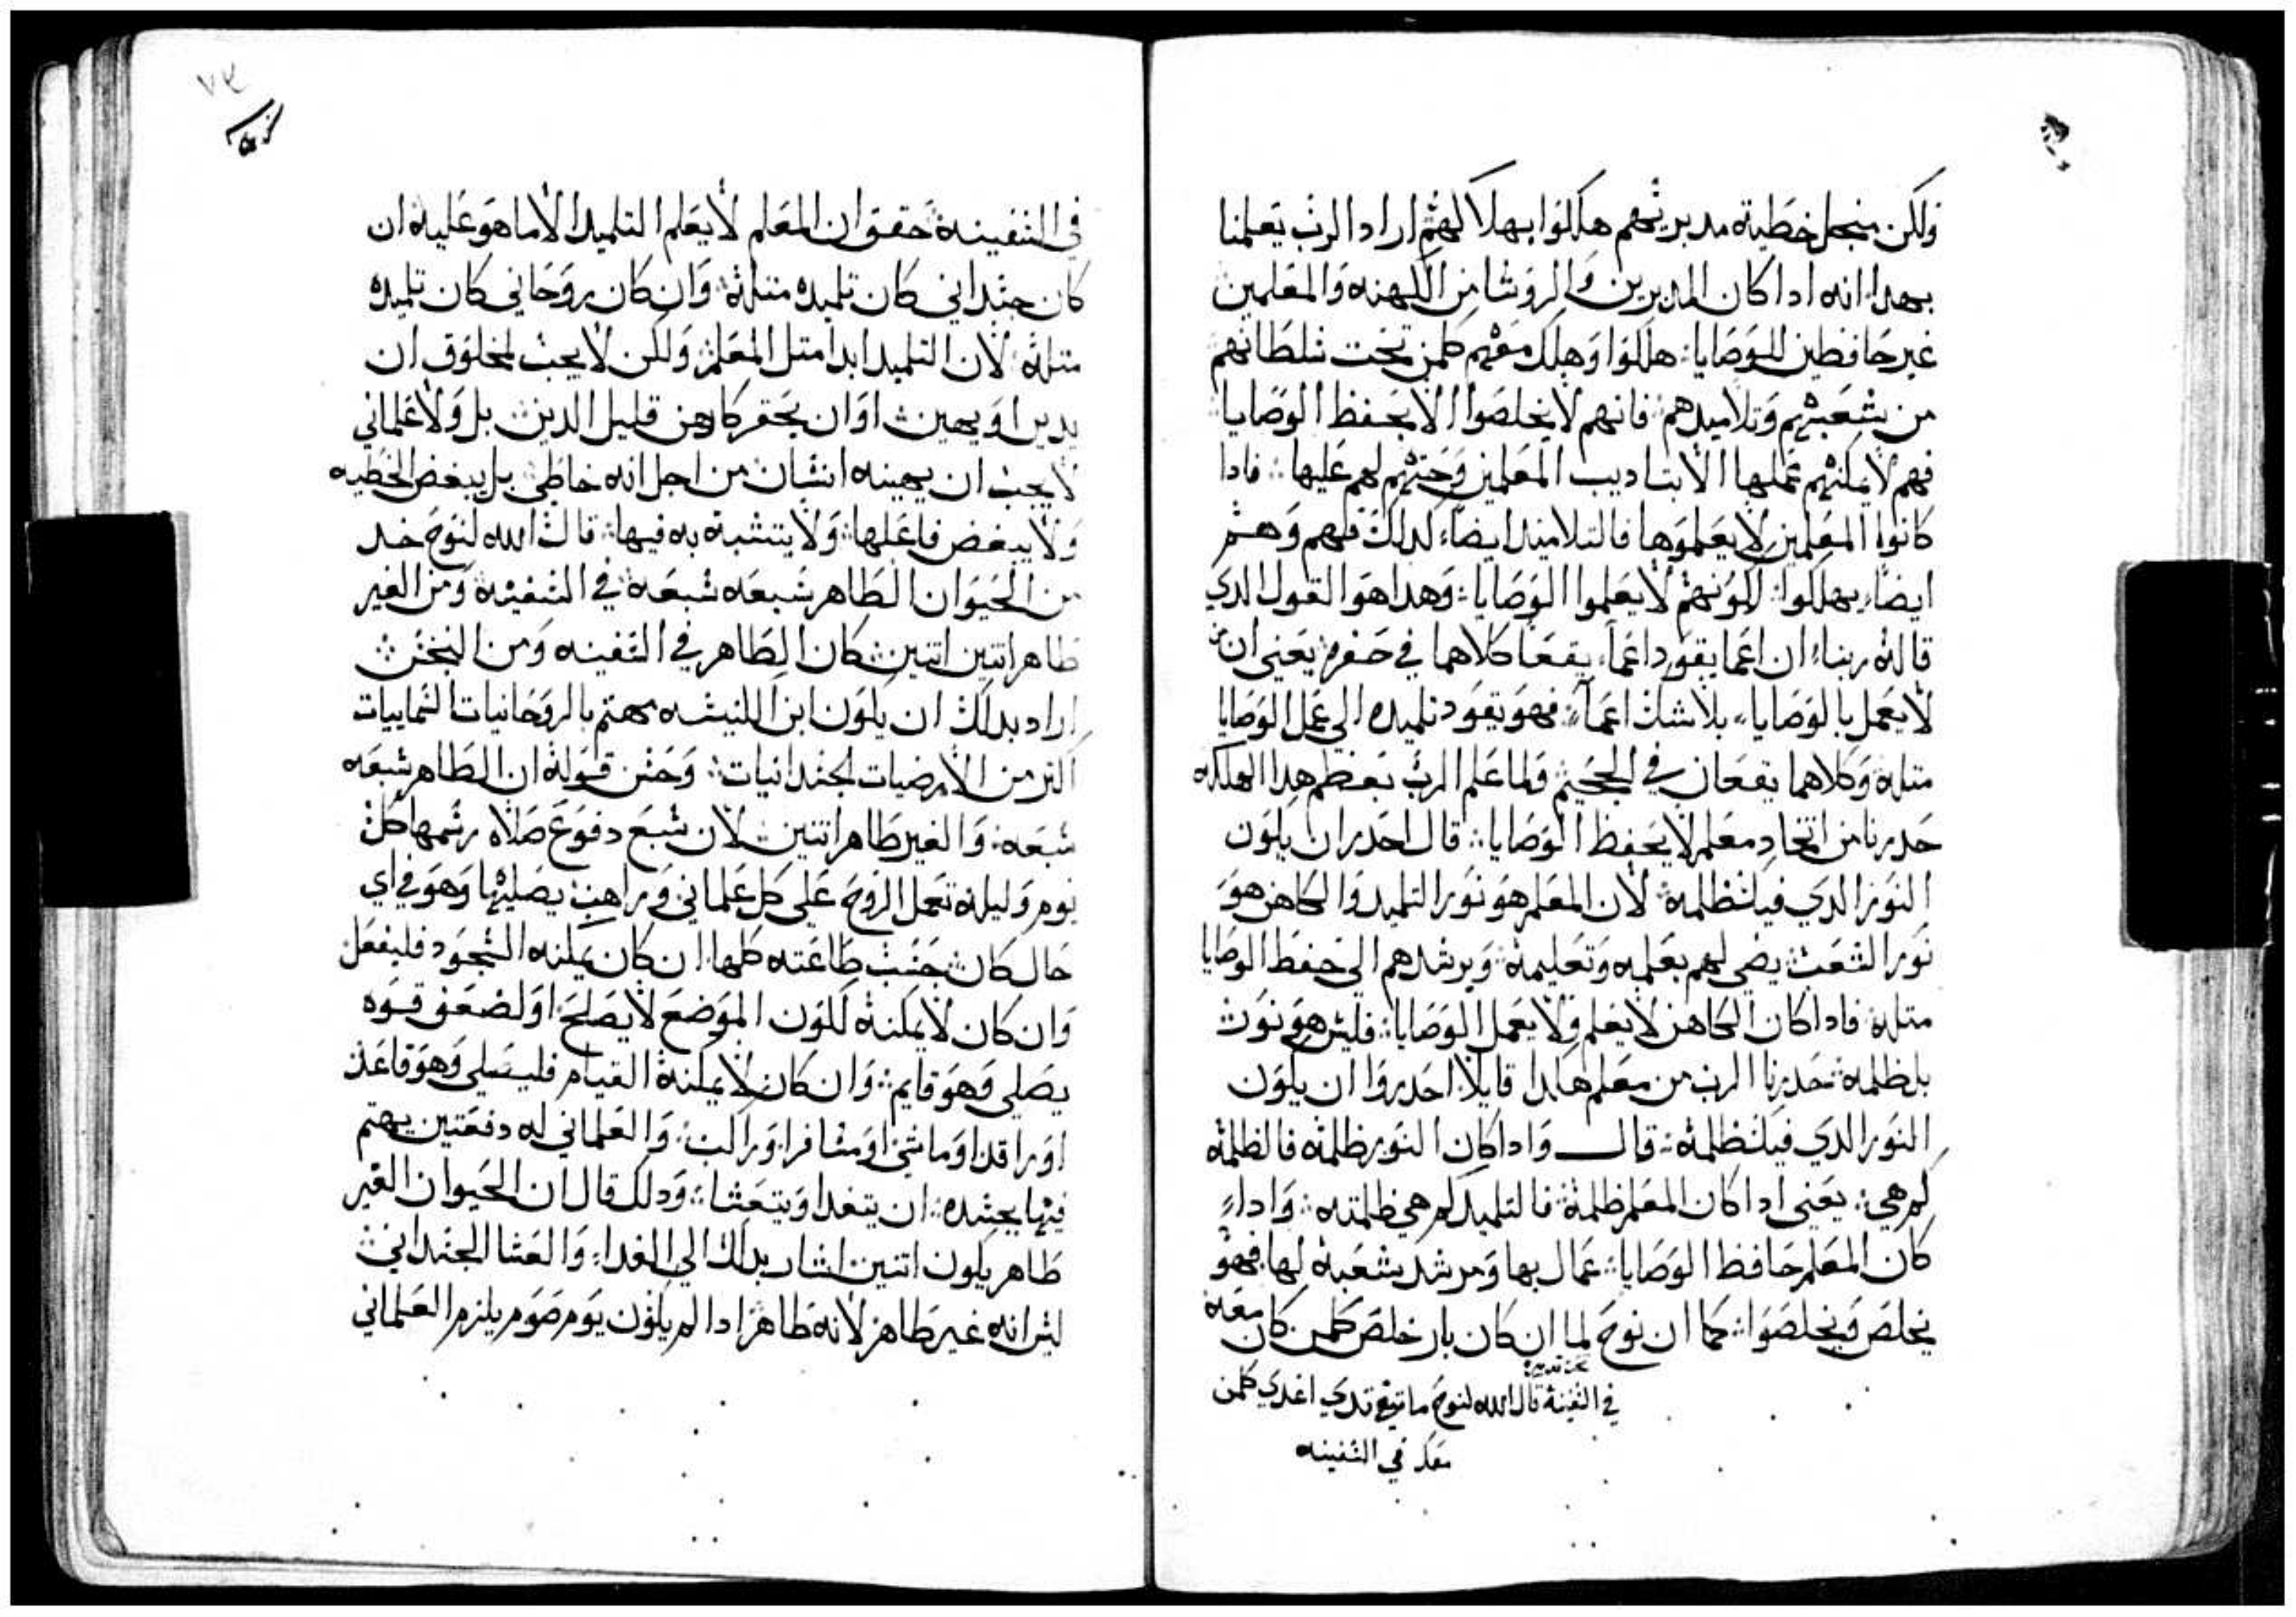 ولكن منجل خطية مدبرينهم هلكوا بهلاكهم اراد الرب يعلمنا
بهدا انه ادا كان المدبرين والروسا من الكهنه والمعلمين
غير حافظين للوصايا هلكوا وهلك معهم كلمن تحت سلطانهم
من شعبهم وتلاميدهم فانهم لا يخلصوا الا بحفظ الوصايا
فهم لا يمكنهم عملها الا بتاديب المعلمين وحتهم لهم عليها فادا
كانوا المعلمين لا يعلموها فالتلاميد ايضاء كدلك فهم وهم
ايضاء يهلكوا لكونهم لا يعلموا الوصايا وهدا هوا القول الدي
قاله ربنا ان اعما يقود اعماء يقعا كلاهما في حفره يعني ان من
لا يعمل بالوصايا بلا شك اعماء فهو يقود تلميده الي عمل الوصايا
متله وكلاهما يقعان في الجحيم ولما علم الرب بعظم هدا الهلكه
حدرنا من اتخاد معلم لا يحفظ الوصايا قال احدر ان يكون
النور الدي فيك ظلمه لان المعلم هو نور التلميد والكاهن هو
نور الشعب يضي لهم بعلمه وتعليمه ويرشدهم الي حفظ الوصايا
متله فادا كان الكاهن لا يعلم ولا يعمل الوصايا فليس هو نور
بل ظلمه حدرنا الرب من معلم هكدا قايلا احدروا ان يكون
النور الدي فيك ظلمه قال وادا كان النور ظلمه فالظلمه
كم هي يعني ادا كان المعلم ظلمة فالتلميد كم هي ظلمته وادا
كان المعلم حافظ الوصايا عمال بها ومرشد شعبه لها فهو
يخلص ويخلصوا كما ان نوح لما ان كان بار خلص كلمن كان معه
تحت تدبيره
في السفينة قال الله لنوح اغدي كلمن
معك في السفينه
في السفينة حقق ان المعلم لا يعلم التلميد الا ما هو عليه ان
كان جسداني كان تلميده متله وان كان روحاني كان تلميده
متله لان التلميد ابدا متل المعلم ولكن لا يجب لمخلوق ان
يدين او يهين او ان يحقر كاهن قليل الدين بل ولا علماني
لا يجب ان يهينه انسان من اجل انه خاطي بل يبغض الخطيه
ولا يبغض فاعلها ولا يتشبه به فيها قال الله لنوح خد
من الحيوان الطاهر سبعه سبعه في السفينه ومن الغير
طاهر اتنين اتنين كان الطاهر في السفينه ومن النجس
اراد بدلك ان يكون ابن الكنيسه مهتم بالروحانيات السماييات
اكتر من الارضيات الجسدانيات وحسن قوله ان الطاهر سبعه
سبعه والغير طاهر اتنين لان سبع دفوع صلاه رسمها كل
يوم وليله تعمل الروح علي كل علماني وراهب يصليها وهو في اي
حال كان جسب طاعته كلها ان كان يمكنه السجود فليفعل
وان كان لا يمكنه لكون الموضع لا يصلح او لضعف قوه
يصلي وهو قايم وان كان لا يمكنه القيام فليصلي وهو قاعد
او راقد او ماشي او مسافر او راكب والعلماني له دفعتين يهتم
فيها بجسده ان يتغدا ويتعشا ودلك قال ان الحيوان الغير
طاهر يكون اتنين اشار بدلك الي الغداء والعشا الجسداني
ليس انه غير طاهر لانه طاهر ادا لم يكون يوم صوم يلزم العلماني